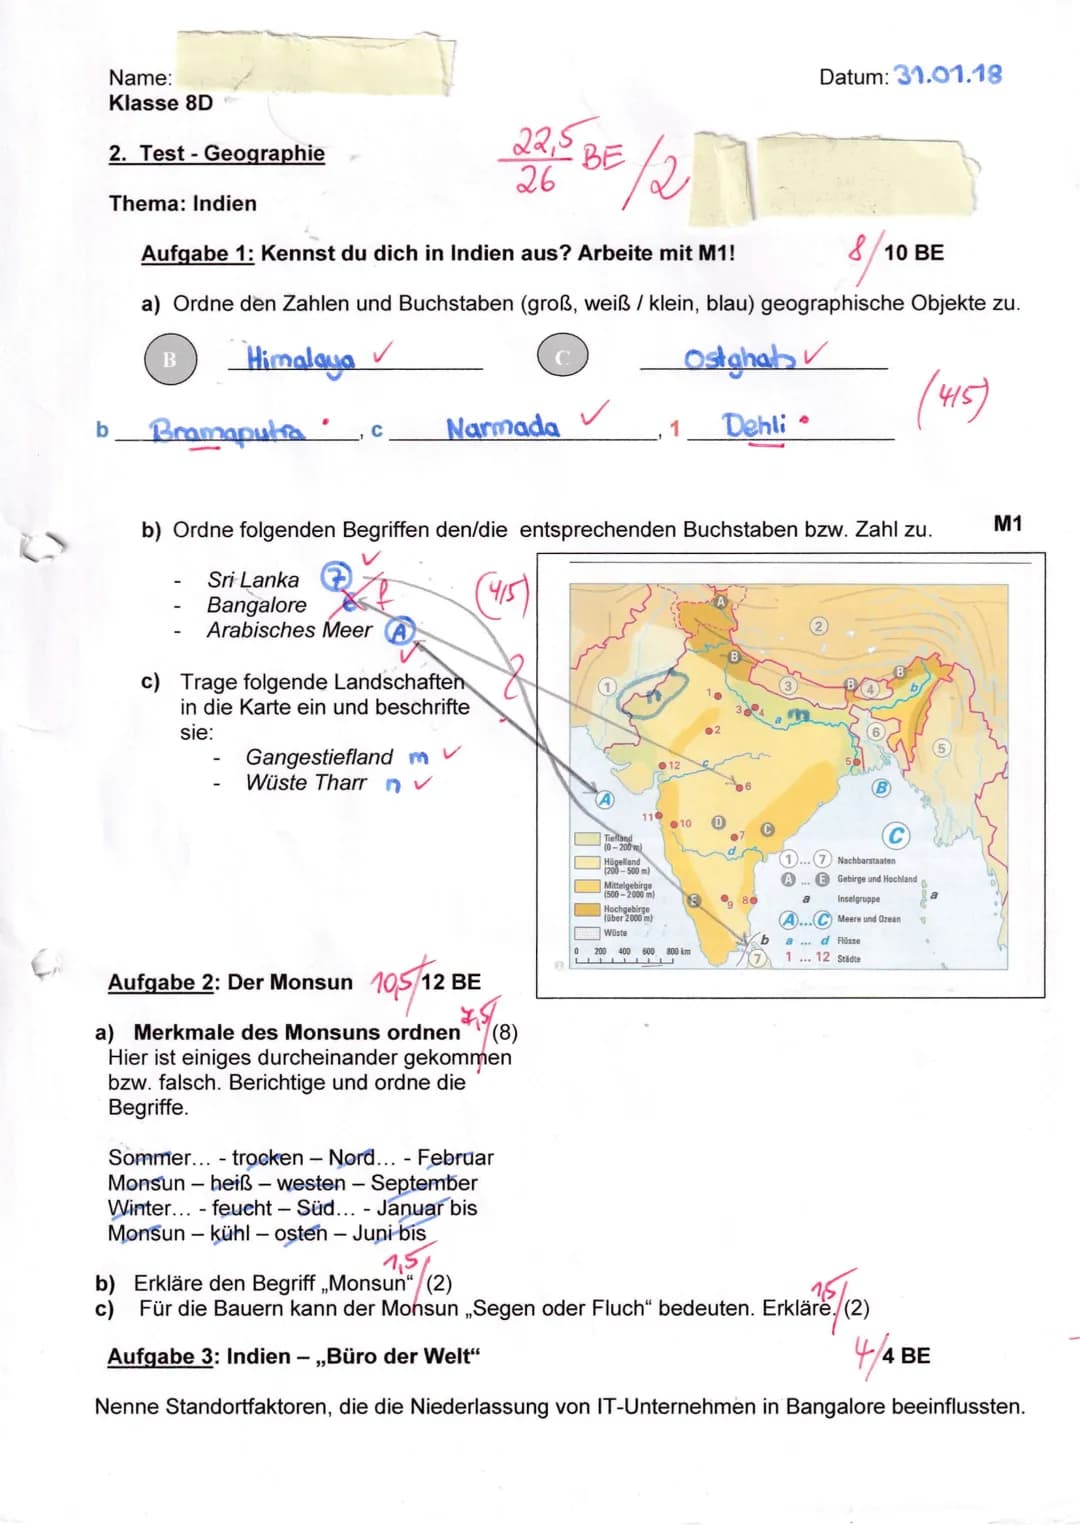 Name:
Datum: 31.01.18
Klasse 8D
2. Test - Geographie
22,5
26
BE /2
Thema: Indien
Aufgabe 1: Kennst du dich in Indien aus? Arbeite mit M1!
8/10 BE
a) Ordne den Zahlen und Buchstaben (groß, weiß / klein, blau) geographische Objekte zu.
B Himalaya ✓ C Ostghats ✓
(4/5)
b Bramaputra, c Narmada ✓, 1 Dehli
b) Ordne folgenden Begriffen den/die entsprechenden Buchstaben bzw. Zahl zu.
M1
- Sri Lanka 7 ✓
(4/5)
- Bangalore f
- Arabisches Meer A ✓
c) Trage folgende Landschaften
in die Karte ein und beschrifte
sie:
- Gangestiefland m ✓
- Wüste Tharr n ✓
A
2
B
1
n
1
3
B
4
B
b
3
4
a
m
2
6
5
12
c
5
6
A
B
11
10
D
7
C
C
d
E
9
8
b
7
a
Tiefland
(0 – 200 m)
Hügelland
(200 – 500 m)
Mittelgebirge
(500 – 2000 m)
Hochgebirge
(über 2000 m)
Wüste
0 200 400 600 800 km
1 ... 7 Nachbarstaaten
A ... E Gebirge und Hochland
a Inselgruppe
A...C Meere und Ozean
a ... d Flüsse
1 ... 12 Städte
Aufgabe 2: Der Monsun 10,5/12 BE
a) Merkmale des Monsuns ordnen 7,5/(8)
Hier ist einiges durcheinander gekommen
bzw. falsch. Berichtige und ordne die
Begriffe.
Sommer... - trocken – Nord... - Februar
Monsun – heiß – westen – September
Winter... - feucht – Süd... - Januar bis
Monsun – kühl – osten – Juni bis
b) Erkläre den Begriff „Monsun“ 1,5/(2)
c) Für die Bauern kann der Monsun „Segen oder Fluch“ bedeuten. Erkläre. 1,5/(2)
Aufgabe 3: Indien – „Büro der Welt“
4/4 BE
Nenne Standortfaktoren, die die Niederlassung von IT-Unternehmen in Bangalore beeinflussten.